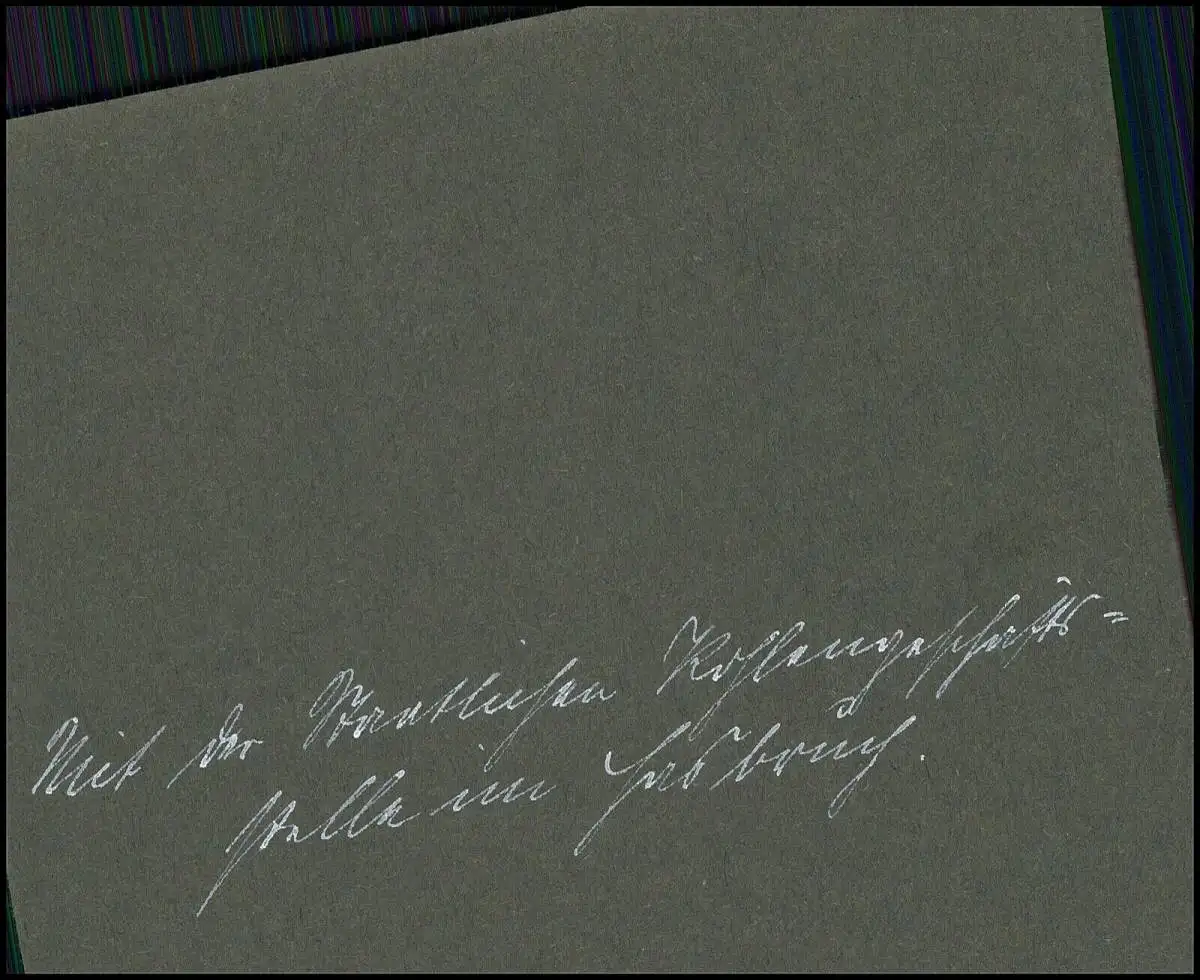 Mit der Staatlichen Kohlengeschäfts=
stelle im Hasbruch.